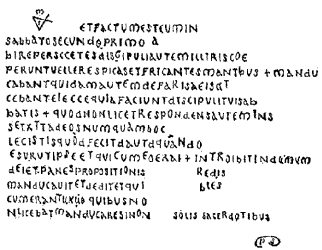 ETFACTUMESTEUMIN
SABBATOSECUNDOPRIMO A
BIREPERSCCETESDISGIPULIAUTEMILLITRISCOE
PERUNTUELLERESPICASETFRICANTESMANTBUS + MANDU
CABANTQUIDAMAUTEMDEFARISAEISDT
CEBANTELECCEQUIAFACIUNTDISCIPULITUISAB
BATIS + QUODNONLICETRESPONDENSAUTEMINS
SETXTTADEOSNUMQUAMBOC
LECISTISQUODFECITDAUTDQUANDO
ESURUTIPSEETQUICUMEOERAI + INTROIBITINDUMUM
DEIETPANESPROPOSITIONIS REDIS
MANDUCAUITETDEDITETQUI BLES
CUMERANTUXUO QUIBUSNO
NLICEBATMANDUCARESINON SOLIS SACERDOTIBUS
PD